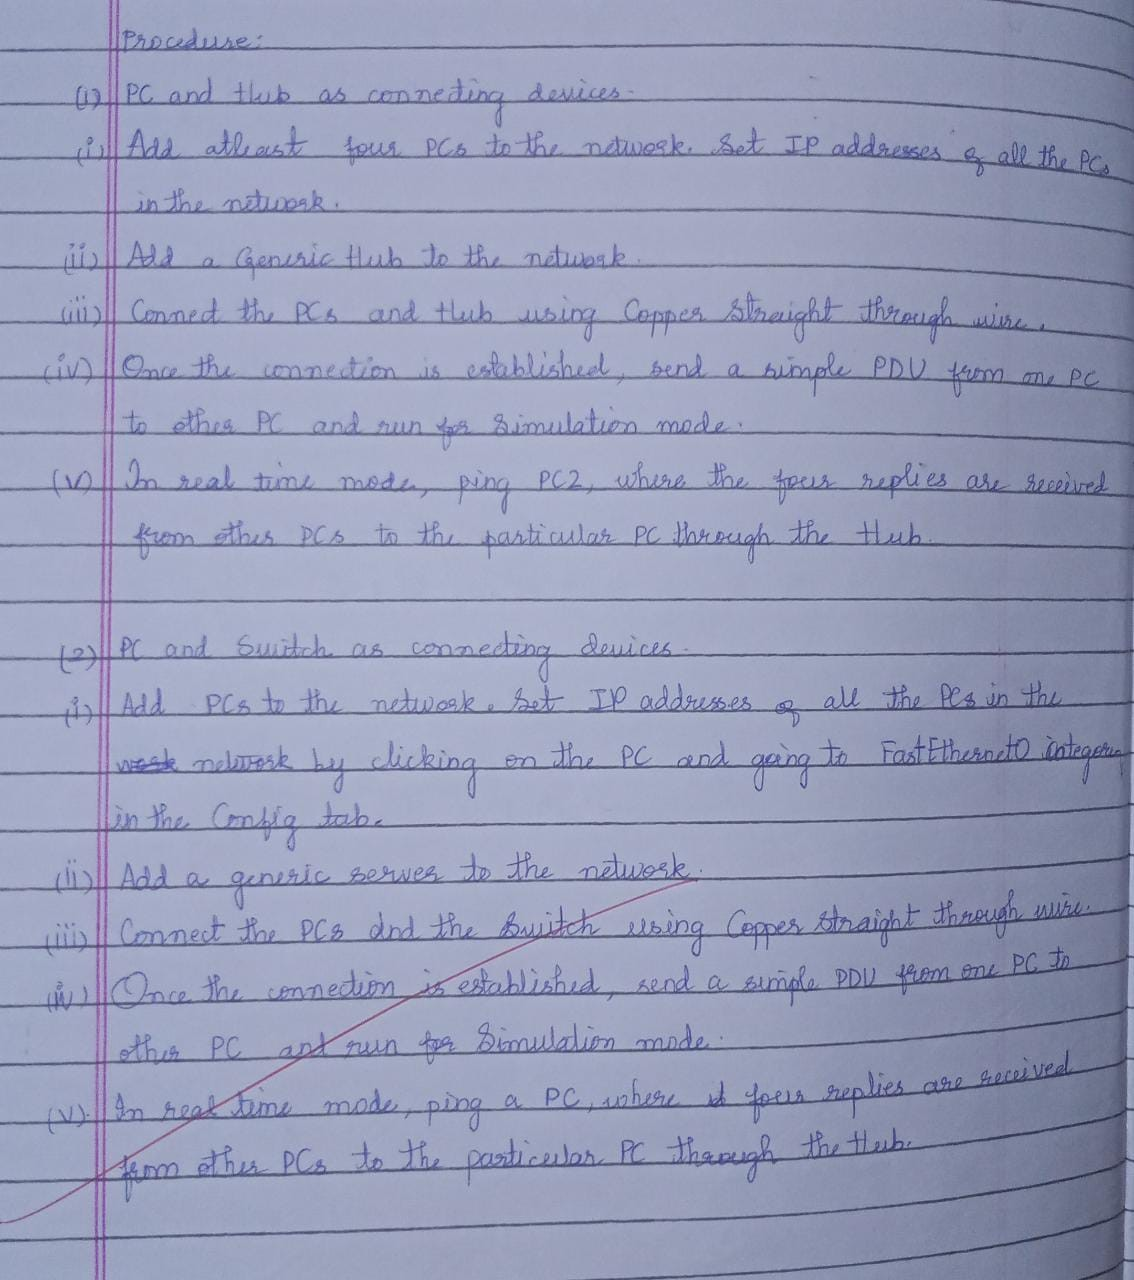 Procedure:
(1) PC and Hub as connecting devices.
(i) Add atleast four PCs to the network. Set IP addresses of all the PCs
in the network.
(ii) Add a Generic Hub to the network.
(iii) Connect the PCs and Hub using Copper Straight through wire.
(iv) Once the connection is established, send a simple PDU from one PC
to other PC and run for Simulation mode.
(v) In real time mode, ping PC2, where the four replies are received
from other PCs to the particular PC through the Hub.
(2) PC and Switch as connecting devices.
(i) Add PCs to the network. Set IP addresses of all the PCs in the
network by clicking on the PC and going to FastEthernet0
in the Config tab.
(ii) Add a generic server to the network.
(iii) Connect the PCs and the Switch using Copper Straight through wire.
(iv) Once the connection is established, send a simple PDU from one PC to
other PC and run for Simulation mode.
(v). In real time mode, ping a PC, where four replies are received
from other PCs to the particular PC through the Hub.